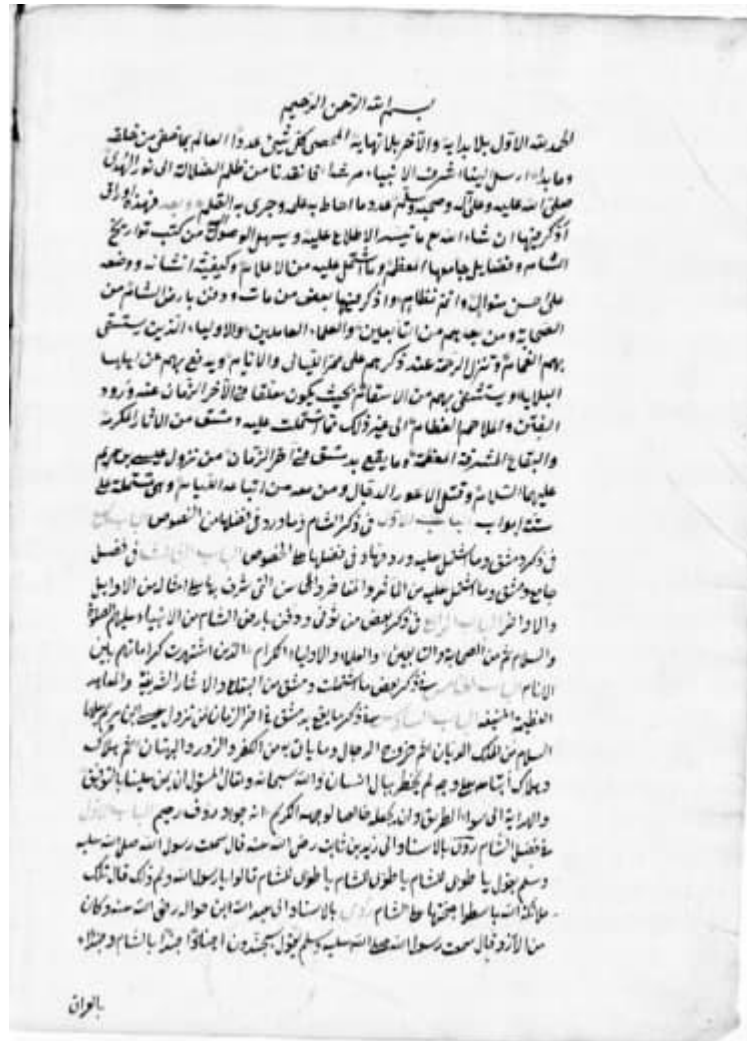 بسم الله الرحمن الرحيم
الحمد لله الاول بلا بداية والآخر بلا نهاية المحصى كل شيئ عددا العالم بما خفى من خلقه
وما بدا ارسل لينا اشرف الانبياء مرشدا فانقذنا من ظلم الضلالة الى نور الهدى
صلى الله عليه وعلى آله وصحبه وسلم عدد ما احاط به علمه وجرى به القلم وبعد فهذه اوراق
اذكر فيها ان شاء الله مع ما تيسر الاطلاع عليه ويسهل الوصول من كتب تواريخ
الشام وفضايل جامعها المعظم وما اشتمل عليه من الاعلام وكيفية انشائه ووضعه
على حسن منوال واتم نظام واذكر فيها بعض من مات ودفن بارض الشام من
الصحابة ومن بعدهم من التابعين والعلماء العاملين والاولياء الذين يستسقى
بهم الغمام وتنزل الرحمة عند ذكرهم على ممر الليال والايام ويدفع بهم عن
البلايا ويستشفى بهم من الاسقام بحيث يكون الآخر الزمان عند ورود
الفتن والملاحم العظام الى غير ذلك مما اشتملت عليه دمشق من الاثار المكرمة
والبقاع المشرفة المعظمة وما يقع بدمشق في آخر الزمان من نزول عيسى بن مريم
عليهما السلام وقتل الاعور الدجال ومن معه من اتباعه وهى مشتملة على
ستة ابواب الباب الاول في ذكر الشام وما ورد في فضلها من النصوص الباب
في ذكر دمشق وما اشتمل عليه وورد في فضلها على الخصوص الباب الثالث في فضل
جامع دمشق وما اشتمل عليه من المآثر والمفاخر والمحاسن التى شرف بها على امثاله من الاوايل
والاواخر الباب الرابع في ذكر بعض من توفى ودفن بارض الشام من الانبياء عليهم الصلاة
والسلام ثم من الصحابة والتابعين والعلماء والاولياء الكرام الذين اشتهرت كراماتهم بين
الانام الباب الخامس في ذكر بعض ما اشتملت دمشق من البقاع والاثار الشريفة والمعابد
العظيمة المنيفة الباب السادس في ذكر ما يقع بدمشق في اخر الزمان من نزول عيسى ابن مريم عليهما
السلام من الملك الديان ثم خروج الدجال وما يات به من الكفر والزور والبهتان ثم هلاكه
وهلاك اتباعه على وجه لم يخطر ببال انسان والله سبحانه وتعالى المسؤل ان يمن علينا بالتوفيق
والهداية الى سواء الطريق وان يجعله خالصا لوجهه الكريم انه جواد رؤف رحيم الباب الاول
في فضل الشام روى بالاسناد الى زيد بن ثابت رضى الله عنه قال سمعت رسول الله صلى الله عليه
وسلم يقول يا طوبى للشام يا طوبى للشام يا طوبى للشام قالوا يا رسول الله ولم ذلك قال تلك
ملائكة الله باسطوا اجنحتها على الشام روى بالاسناد الى عبد الله ابن حوالة رضى الله عنه وكان
من الازد قال سمعت رسول الله صلى الله عليه وسلم يقول ستجندون اجنادا جندا بالشام وجندا
بالعراق